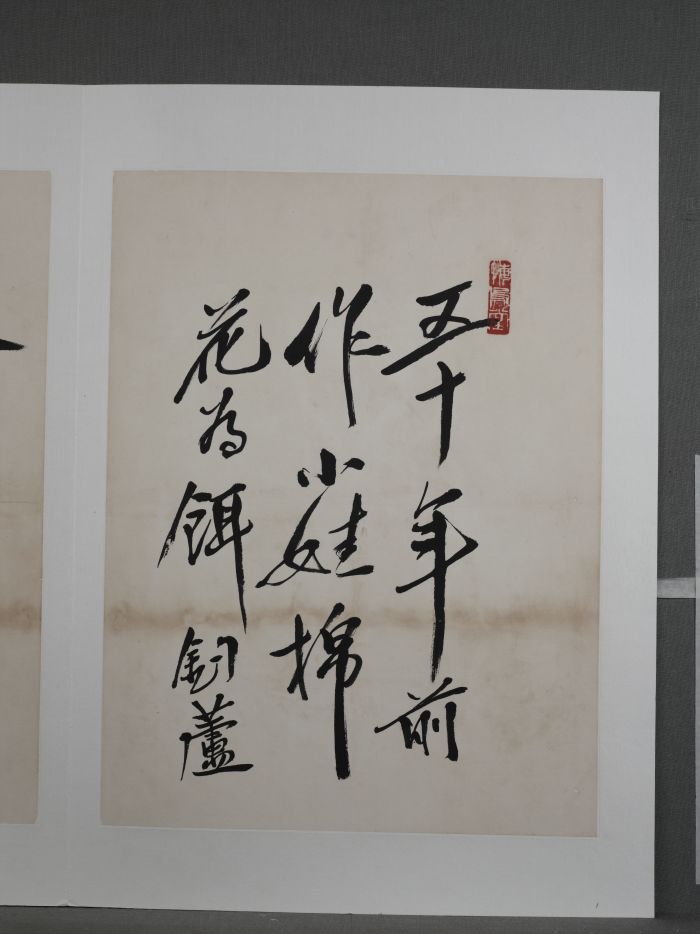 五十年前
作小娃棉
花为餌釣蘆